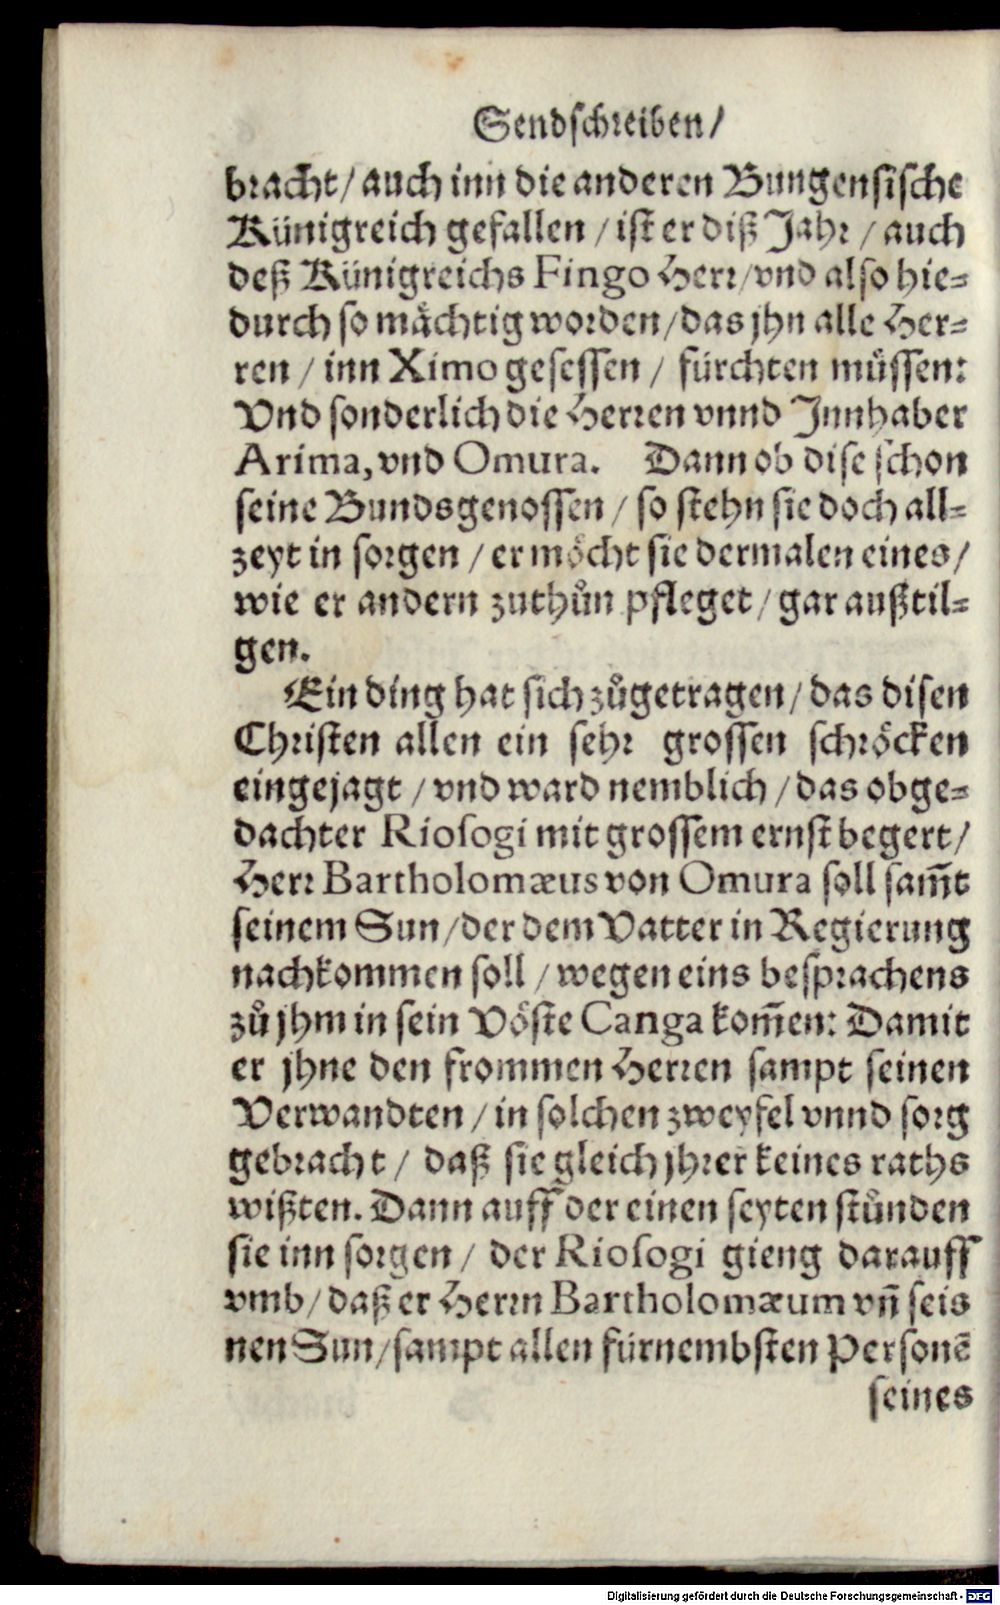 Sendschreiben/
bracht/ auch inn die anderen Bungensische
Künigreich gefallen / ist er diß Jahr / auch
deß Künigreichs Fingo Herr/ vnd also hie=
durch so mächtig worden/ das jhn alle Her=
ren / inn Ximo gesessen / fürchten müssen:
Vnd sonderlich die Herren vnnd Innhaber
Arima, vnd Omura. Dann ob dise schon
seine Bundsgenossen / so stehn sie doch all=
zeyt in sorgen / er möcht sie dermalen eines/
wie er andern zuthůn pfleget / gar außtil=
gen.
Ein ding hat sich zůgetragen/ das disen
Christen allen ein sehr grossen schröcken
eingejagt / vnd ward nemblich / das obge=
dachter Riosogi mit grossem ernst begert/
Herr Bartholomæus von Omura soll sam̃t
seinem Sun/ der dem Vatter in Regierung
nachkommen soll / wegen eins besprachens
zů jhm in sein Vöste Canga kom̃en: Damit
er jhne den frommen Herren sampt seinen
Verwandten / in solchen zweyfel vnnd sorg
gebracht / daß sie gleich jhrer keines raths
wißten. Dann auff der einen seyten stůnden
sie inn sorgen / der Riosogi gieng darauff
vmb/ daß er Herrn Bartholomæum vñ seis
nen Sun/ sampt allen fürnembsten Personẽ
seines
Digitalisierung gefördert durch die Deutsche Forschungsgemeinschaft - DFG